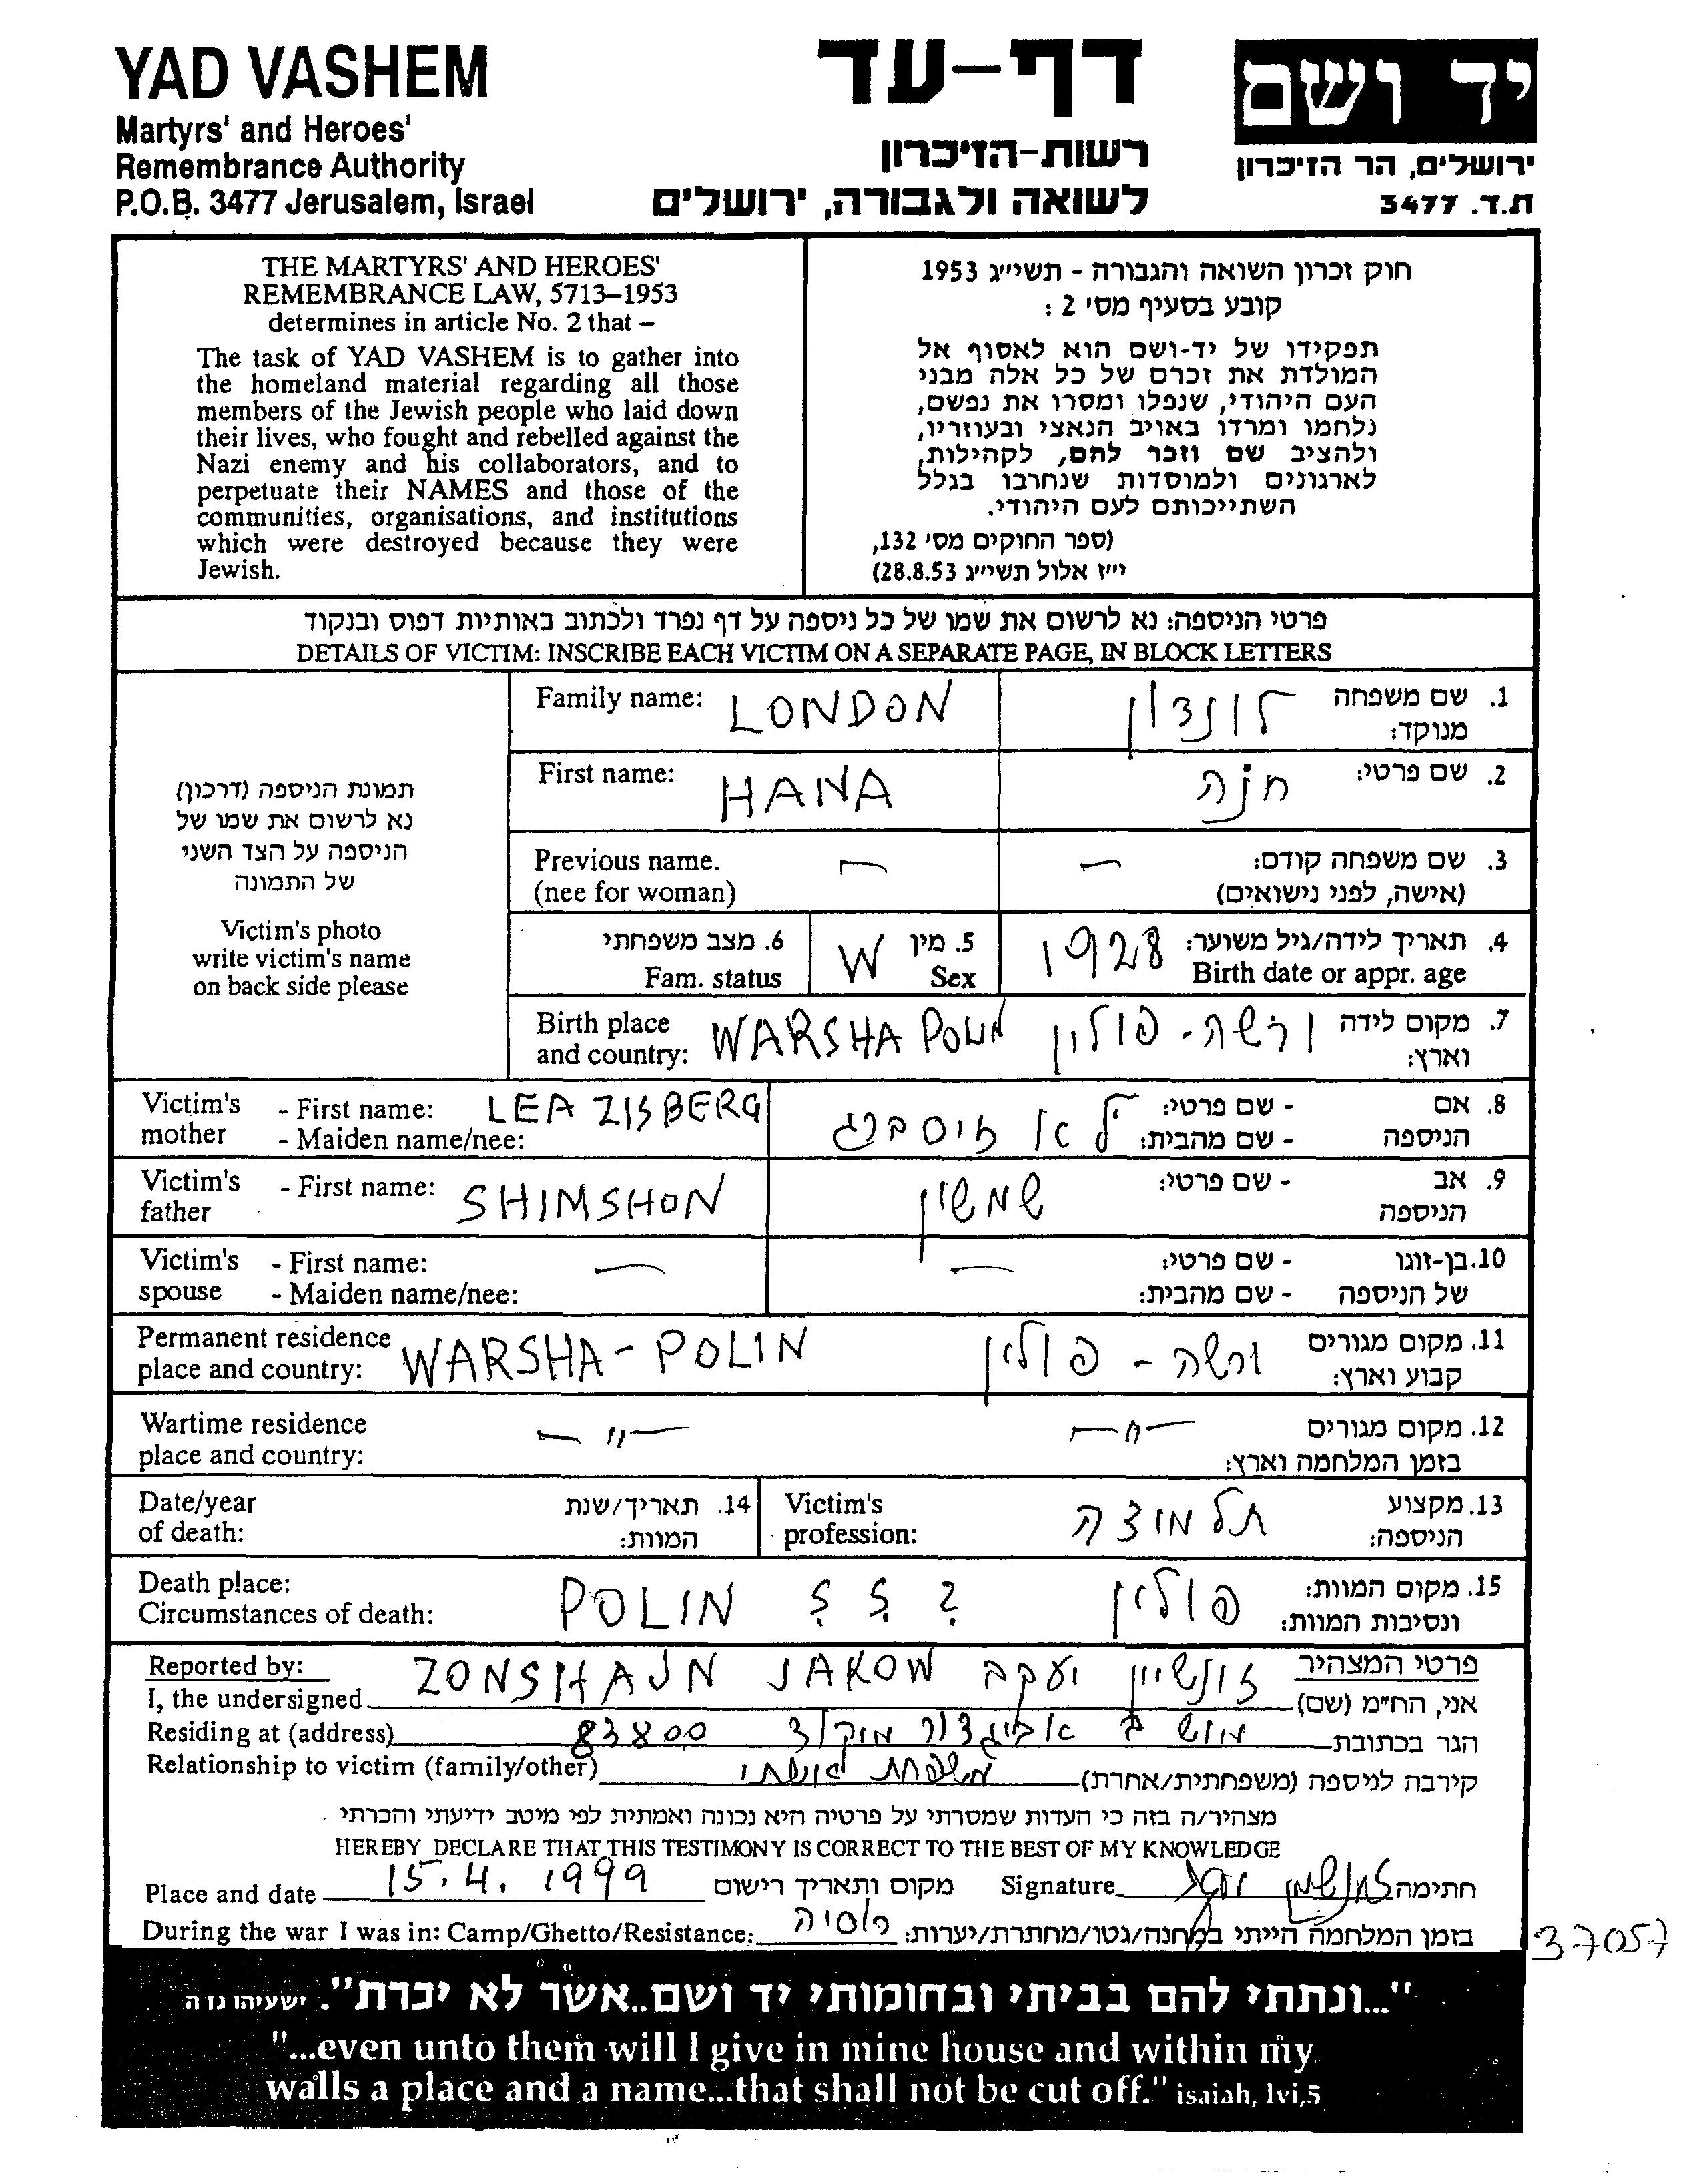 YAD VASHEM
Martyrs' and Heroes'
Remembrance Authority
P.O.B. 3477 Jerusalem, Israel
דף-עד
רשות-הזיכרון
לשואה ולגבורה, ירושלים
יד ושם
ירושלים, הר הזיכרון
ת.ד. 3477
THE MARTYRS' AND HEROES'
REMEMBRANCE LAW, 5713–1953
determines in article No. 2 that –
The task of YAD VASHEM is to gather into
the homeland material regarding all those
members of the Jewish people who laid down
their lives, who fought and rebelled against the
Nazi enemy and his collaborators, and to
perpetuate their NAMES and those of the
communities, organisations, and institutions
which were destroyed because they were
Jewish.
חוק זכרון השואה והגבורה - תשי״ג 1953
קובע בסעיף מס׳ 2 :
תפקידו של יד-ושם הוא לאסוף אל
המולדת את זכרם של כל אלה מבני
העם היהודי, שנפלו ומסרו את נפשם,
נלחמו ומרדו באויב הנאצי ובעוזריו,
ולהציב שם וזכר להם, לקהילות,
לארגונים ולמוסדות שנחרבו בגלל
השתייכותם לעם היהודי.
(ספר החוקים מס׳ 132,
י״ז אלול תשי״ג 28.8.53)
פרטי הניספה: נא לרשום את שמו של כל ניספה על דף נפרד ולכתוב באותיות דפוס ובנקוד
DETAILS OF VICTIM: INSCRIBE EACH VICTIM ON A SEPARATE PAGE, IN BLOCK LETTERS
תמונת הניספה (דרכון)
נא לרשום את שמו של
הניספה על הצד השני
של התמונה
Victim's photo
write victim's name
on back side please
Family name: LONDON
1. שם משפחה מנוקד: לונדון
First name: HANA
2. שם פרטי: חנה
Previous name. –
(nee for woman)
3. שם משפחה קודם: –
(אישה, לפני נישואים)
4. תאריך לידה/גיל משוער: 1928
Birth date or appr. age
5. מין W
Sex
6. מצב משפחתי
Fam. status
Birth place and country: WARSHA POLIN
7. מקום לידה וארץ: ורשה - פולין
Victim's mother - First name: LEA ZISBERG
- Maiden name/nee:
8. אם הניספה - שם פרטי: לאה זיסברג
- שם מהבית:
Victim's father - First name: SHIMSHON
9. אב הניספה - שם פרטי: שמשון
Victim's spouse - First name: –
- Maiden name/nee:
10. בן-זוגו של הניספה - שם פרטי: –
- שם מהבית:
Permanent residence place and country: WARSHA - POLIN
11. מקום מגורים קבוע וארץ: ורשה - פולין
Wartime residence place and country: – " –
12. מקום מגורים בזמן המלחמה וארץ: – " –
Date/year of death:
14. תאריך/שנת המוות:
Victim's profession:
13. מקצוע הניספה: תלמידה
Death place: POLIN ? ? ?
Circumstances of death:
15. מקום המוות: פולין
ונסיבות המוות:
Reported by:
פרטי המצהיר
I, the undersigned ZONSHAJN JAKOW זונשיין יעקב אני, הח״מ (שם)
Residing at (address) מושב אביגדור 83800 הגר בכתובת
Relationship to victim (family/other) משפחת אשתי קירבה לניספה (משפחתית/אחרת)
מצהיר/ה בזה כי העדות שמסרתי על פרטיה היא נכונה ואמתית לפי מיטב ידיעתי והכרתי.
HEREBY DECLARE THAT THIS TESTIMONY IS CORRECT TO THE BEST OF MY KNOWLEDGE
Place and date 15.4.1999 מקום ותאריך רישום Signature חתימה
During the war I was in: Camp/Ghetto/Resistance: רוסיה בזמן המלחמה הייתי במחנה/גטו/מחתרת/יערות:
37057
"...ונתתי להם בביתי ובחומותי יד ושם..אשר לא יכרת". ישעיהו נו ה
"...even unto them will I give in mine house and within my
walls a place and a name...that shall not be cut off." isaiah, lvi,5